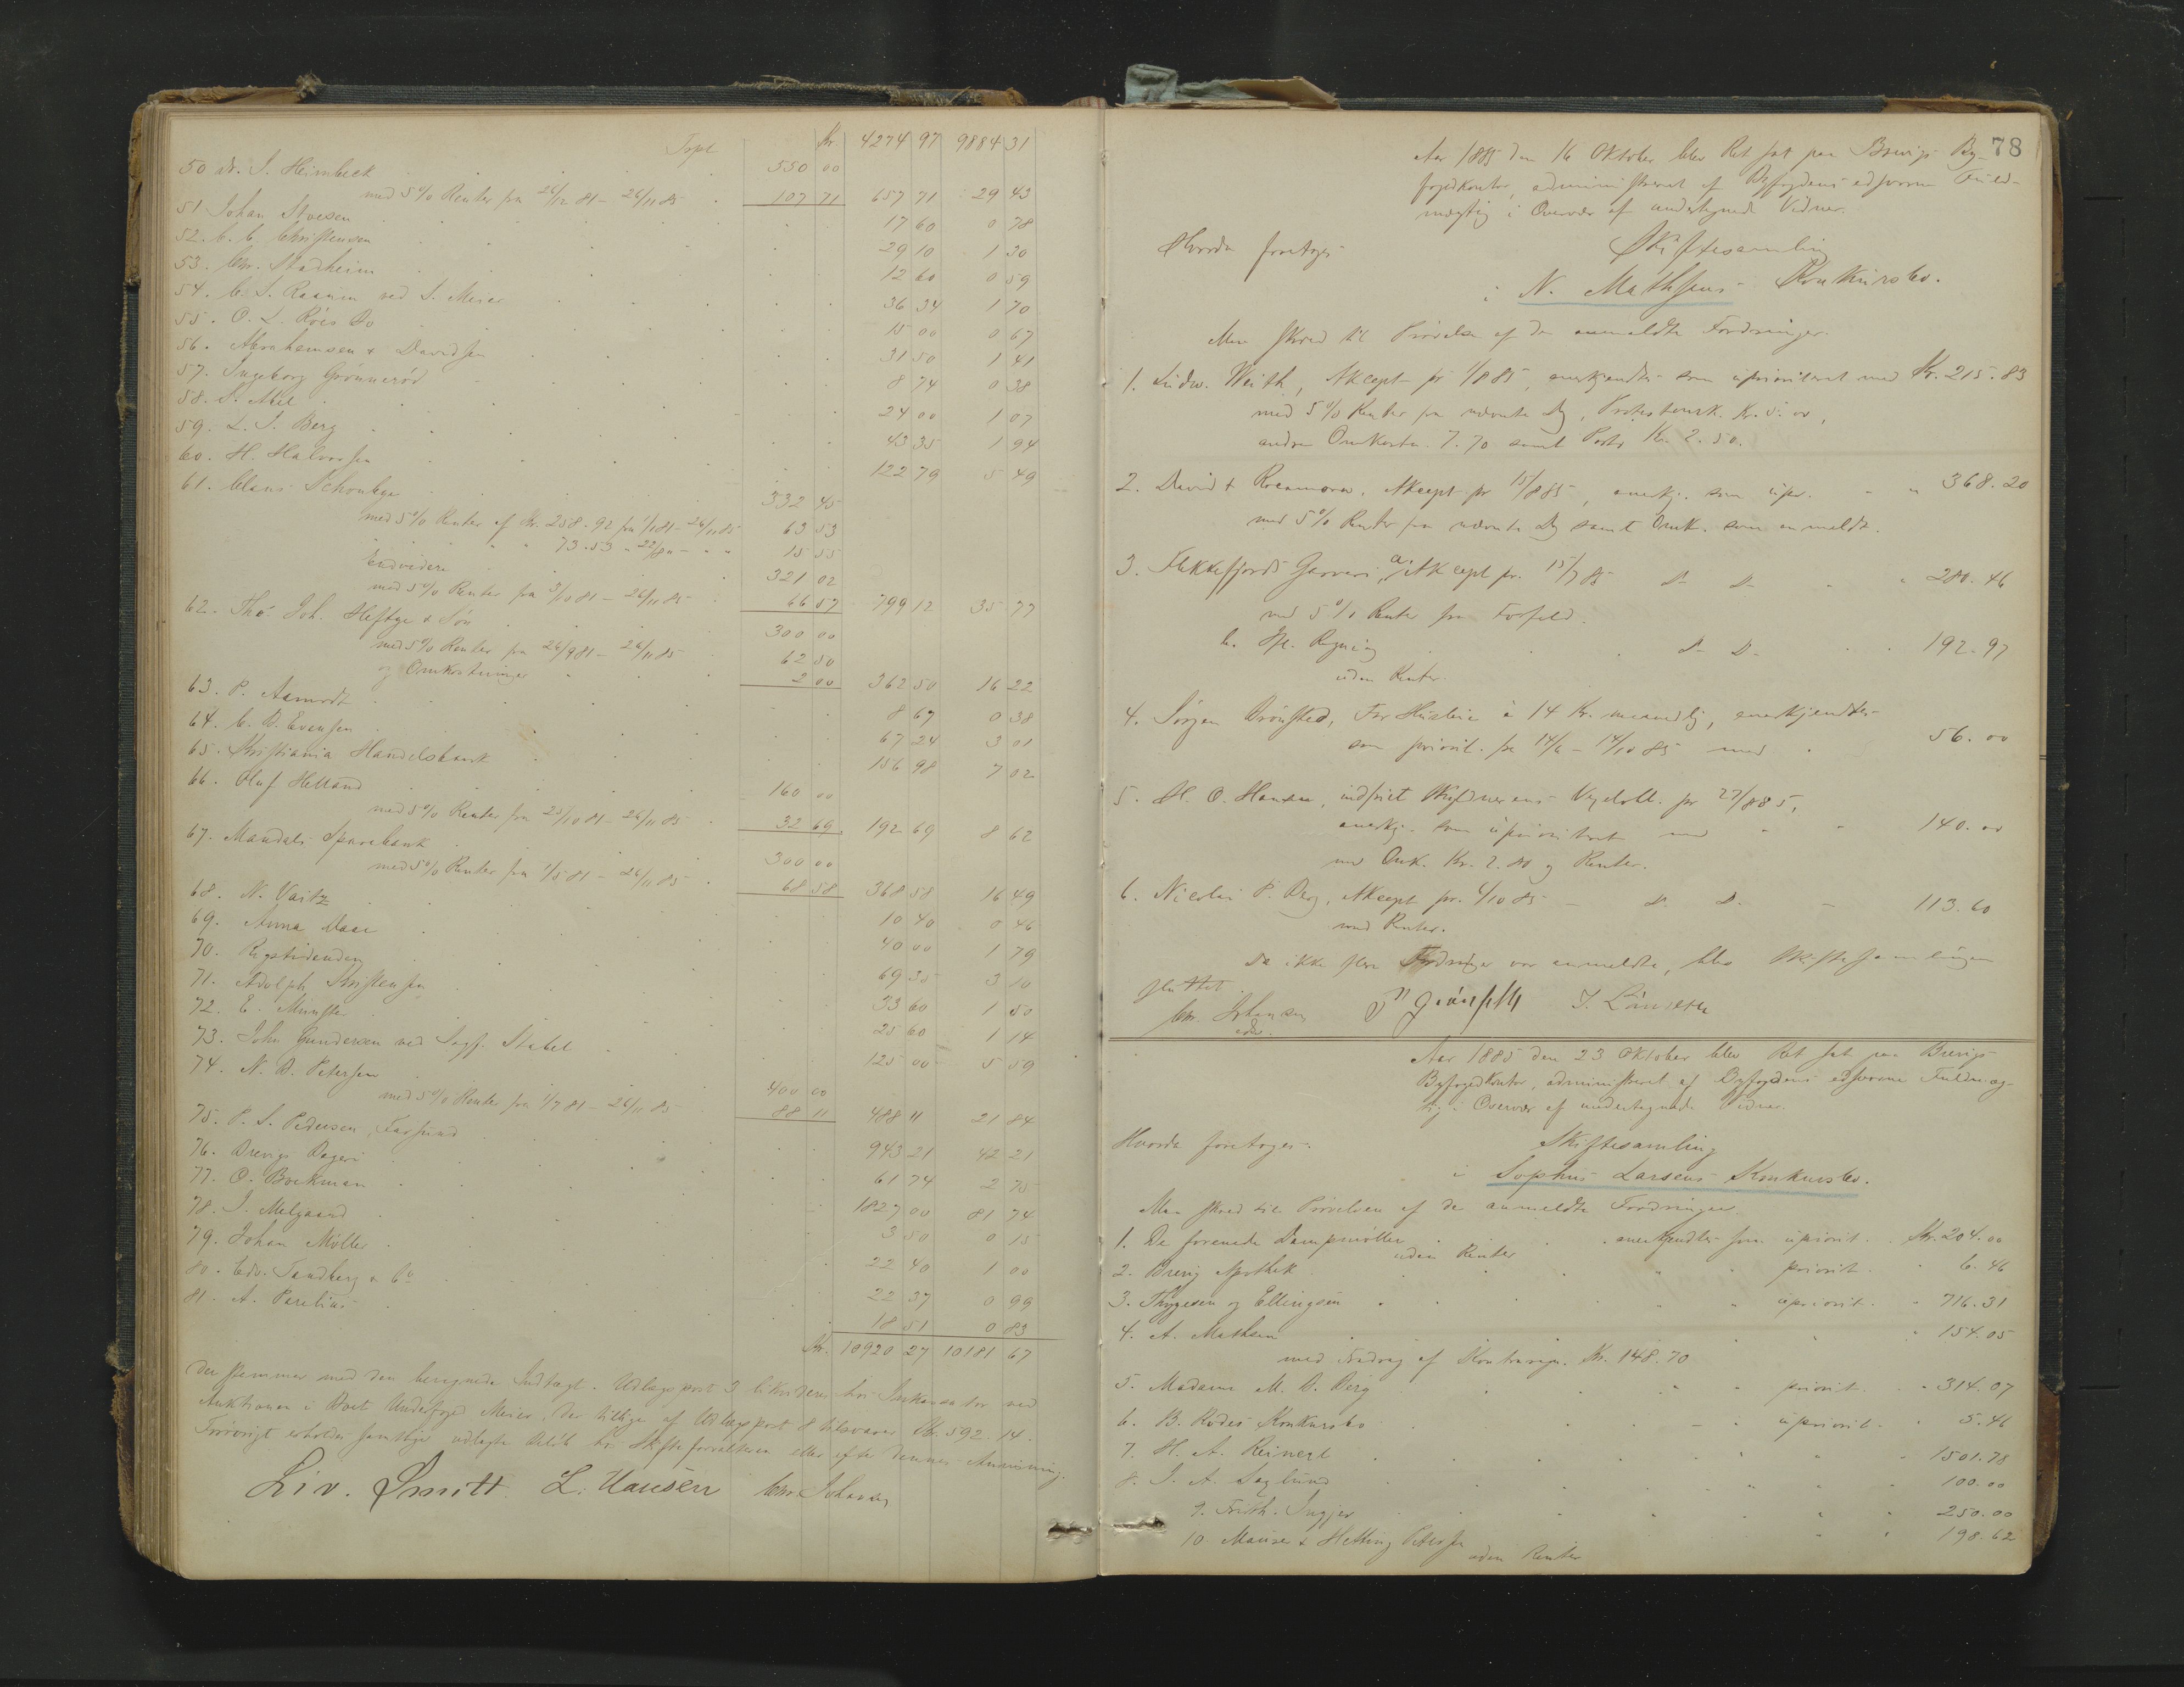 Trspt. Kr. 4274 97 9884 31
50 Dr. I. Heimbeck 550 00
med 5% Renter fra 26/12 81 - 26/11 85 107 71 657 71 29 43
51 Johan Stoesen 17 60 0 78
52. C. C. Christensen 29 10 1 30
53. Chr. Stadheim 12 60 0 59
54. C. S. Raanim ved S. Meier 36 34 1 70
55. O. L. Röes Bo 15 00 0 67
56. Abrahamsen & Davidsen 31 50 1 41
57. Ingeborg Grönnerød 8 74 0 38
58. S. Abel 24 00 1 07
59. L. J. Berg 43 35 1 94
60. H. Halvorsen 122 79 5 49
61. Claus Schonhye 332 45
med 5% Renter af Kr. 258.92 fra 1/1 81 - 26/11 85 63 53
" " " " 73.53 " 22/8 " - " " 15 55
Endvidere 321 02
med 5% Renter fra 3/10 81 - 26/11 85 66 57 799 12 35 77
62. Ths. Joh. Heftye & Søn 300 00
med 5% Renter fra 26/9 81 - 26/11 85 62 50
og Omkostninger 2 00 362 50 16 22
63. P. Aamodt 8 67 0 38
64. C. B. Evensen 67 24 3 01
65. Kristiania Handelsbank 156 98 7 02
66. Oluf Helland 160 00
med 5% Renter fra 25/10 81 - 26/11 85 32 69 192 69 8 62
67. Mandals Sparebank 300 00
med 5% Renter fra 1/5 81 - 26/11 85 68 58 368 58 16 49
68. N. Vaitz 10 40 0 46
69. Anna Daae 40 00 1 79
70. Rigstidenden 69 35 3 10
71. Adolph Kristensen 33 60 1 50
72. E. Münster 25 60 1 14
73. John Gundersen ved Sagf. Stabel 125 00 5 59
74. N. B. Petersen 400 00
med 5% Renter fra 1/7 81 - 26/11 85 88 11 488 11 21 84
75. P. S. Pedersen, Farsund 943 21 42 21
76. Brevigs Bageri 61 74 2 75
77. O. Boekman 1827 00 81 74
78. J. Melgaard 3 50 0 15
79. Johan Møller 22 40 1 00
80. Edv. Sandberg & Co 22 37 0 99
81. A. Parelius 18 51 0 83
Kr. 10920 27 10181 67
Der stemmer med den beregnede Indtægt. Udlægspost 3 likviderer hos Inkassator ved
Auktionen i Boet Underfoged Meier, der tillige af Udlægspost 8 tilsvarer Kr. 592.14.
Forøvrigt erholdes samtlige udlagte Beløb hos Skifteforvalteren eller efter dennes Anvisning.
Liv. Smitt L. Hansen Chr. Johansen
78
Aar 1885 den 16 Oktober blev Ret sat paa Brevigs By-
fogedkontor, administreret af Byfogdens edsvorne Fuld-
mægtig i Overvær af undertegnede Vidner.
Hvorda foretoges Skiftesamling
i N. Mathsens Konkursbo.
Man skred til Prøvelse af de anmeldte Fordringer.
1. Ludw. Weith, Akcept pr 1/8 85, anerkjendtes som uprioriteret med Kr. 215.83
med 5% Renter fra nævnte Dg, Protestomk. Kr. 5.00,
andre Omkostn. 7.70 samt Porto Kr. 2.50.
2. David & Rocamora, Akcept pr 15/8 85, anerkj. som upr. " " 368.20
med 5% Renter fra nævnte Dg samt Omk. som anmeldt.
3. Flekkefjords Garveri, a, Akcept pr. 15/7 85 D- D- " " 280.46
med 5% Renter fra Forfald.
b. If. Regning D- D- 192.97
uden Renter.
4. Jörgen Brönsted, For Husleie à 14 Kr. maanedlig, anerkjendtes
som priorit. fra 14/6 - 14/10 85 med 56.00
5. H. O. Hansen, indfriet Skyldnerens Vexelobl. pr 27/8 85,
anerkj. som uprioriteret med " " 140.00
med Omk. Kr. 2.80 og Renter.
6. Nicolai P. Berg, Akcept pr. 6/10 85 - D- D- - 113.60
med Renter.
Da ikke flere Fordringer var anmeldte, blev Skiftesamlingen
sluttet.
Chr. Johansen J. Lönseth
edsv.
Aar 1885 den 23 Oktober blev Ret sat paa Brevigs
Byfogedkontor, administreret af Byfogdens edsvorne Fuldmæg-
tig i Overvær af undertegnede Vidner.
Hvorda foretoges Skiftesamling
i Sophus Larsens Konkursbo.
Man skred til Prøvelsen af de anmeldte Fordringer.
1. De forenede Dampmøller anerkjendtes som upriorit. Kr. 204.00
uden Renter
2. Brevig Apothek " " priorit. " 6.46
3. Thygesen og Ellingsen " " upriorit. " 716.31
4. A. Mathsen " " 154.05
med Fradrag af Kontraregn. Kr. 148.70
5. Madame M. B. Berg " " priorit. " 314.07
6. B. Rödes Konkursbo " upriorit. " 5.46
7. H. A. Reinert " " " 1501.78
8. J. A. Saglund " " " 100.00
9. Frith. Ingier " " " 250.00
10. Mauser & Hetting Petersen " " 198.62
uden Renter